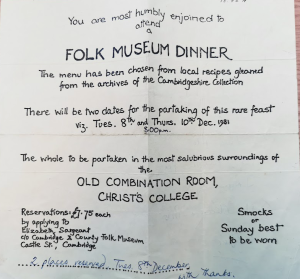 You are most humbly enjoined to
attend
a
FOLK MUSEUM DINNER
The menu has been chosen from local recipes gleaned
from the archives of the Cambridgeshire Collection
There will be two dates for the partaking of this rare feast
viz. Tues. 8TH and Thurs. 10TH Dec. 1981
8.00p.m.
The whole to be partaken in the most salubrious surroundings of
the
OLD COMBINATION ROOM,
CHRIST'S COLLEGE
Reservations: £7.75 each
by applying to
Elizabeth Sargeant
c/o Cambridge & County Folk Museum
Castle St., Cambridge
Smocks
or
Sunday best
to be worn
2 places reserved Tues 8th December
with thanks.